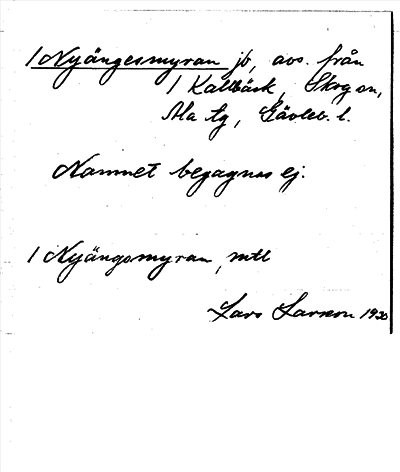 1 Nyängesmyran jb, avs. från
1 Kallbäck, Skog sn,
Ala tg, Gävleb. l.
Namnet begagnas ej.
1 Nyängsmyran, mtl
Lars Larsson 1920